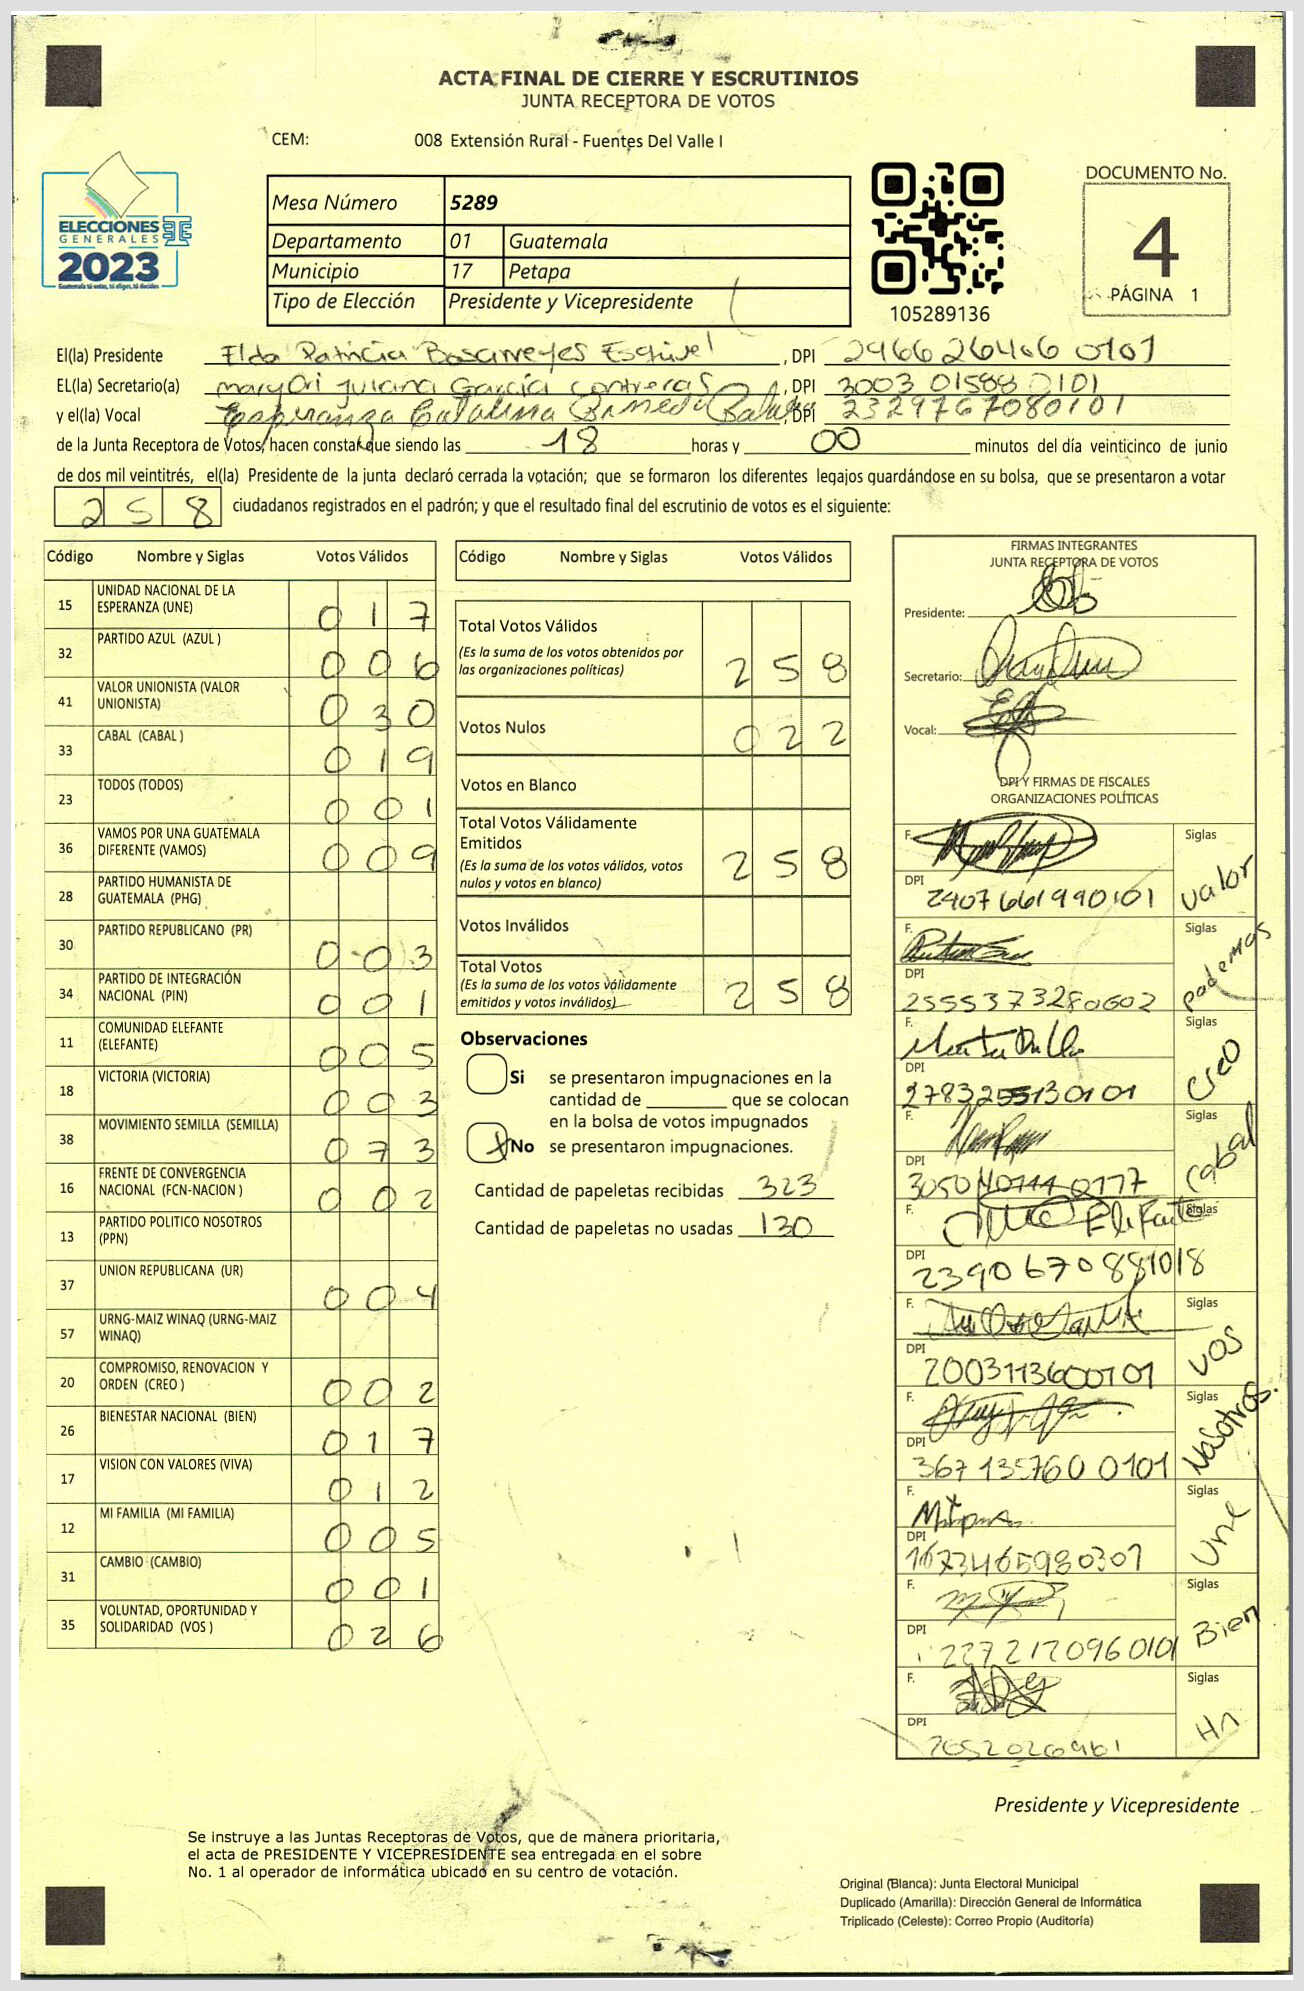 ACTA FINAL DE CIERRE Y ESCRUTINIOS
JUNTA RECEPTORA DE VOTOS
CEM: 008 Extensión Rural - Fuentes Del Valle I
ELECCIONES
GENERALES
2023
Guatemala tú votas, tú eliges, tú decides
Mesa Número 5289
Departamento 01 Guatemala
Municipio 17 Petapa
Tipo de Elección Presidente y Vicepresidente
105289136
DOCUMENTO No.
4
PÁGINA 1
El(la) Presidente Elda Patricia Esquivel , DPI 2966 26406 0101
EL(la) Secretario(a) maryOri Juliana García contreras , DPI 3003 01588 0101
y el(la) Vocal Esperanza Catalina , DPI 2329767080101
de la Junta Receptora de Votos, hacen constar que siendo las 18 horas y 00 minutos del día veinticinco de junio
de dos mil veintitrés, el(la) Presidente de la junta declaró cerrada la votación; que se formaron los diferentes legajos guardándose en su bolsa, que se presentaron a votar
258 ciudadanos registrados en el padrón; y que el resultado final del escrutinio de votos es el siguiente:
Código Nombre y Siglas Votos Válidos
15 UNIDAD NACIONAL DE LA ESPERANZA (UNE) 017
32 PARTIDO AZUL (AZUL ) 006
41 VALOR UNIONISTA (VALOR UNIONISTA) 030
33 CABAL (CABAL ) 019
23 TODOS (TODOS) 001
36 VAMOS POR UNA GUATEMALA DIFERENTE (VAMOS) 009
28 PARTIDO HUMANISTA DE GUATEMALA (PHG)
30 PARTIDO REPUBLICANO (PR) 003
34 PARTIDO DE INTEGRACIÓN NACIONAL (PIN) 001
11 COMUNIDAD ELEFANTE (ELEFANTE) 005
18 VICTORIA (VICTORIA) 003
38 MOVIMIENTO SEMILLA (SEMILLA) 073
16 FRENTE DE CONVERGENCIA NACIONAL (FCN-NACION ) 002
13 PARTIDO POLITICO NOSOTROS (PPN)
37 UNION REPUBLICANA (UR) 004
57 URNG-MAIZ WINAQ (URNG-MAIZ WINAQ)
20 COMPROMISO, RENOVACION Y ORDEN (CREO ) 002
26 BIENESTAR NACIONAL (BIEN) 017
17 VISION CON VALORES (VIVA) 012
12 MI FAMILIA (MI FAMILIA) 005
31 CAMBIO (CAMBIO) 001
35 VOLUNTAD, OPORTUNIDAD Y SOLIDARIDAD (VOS ) 026
Código Nombre y Siglas Votos Válidos
Total Votos Válidos 258
(Es la suma de los votos obtenidos por
las organizaciones políticas)
Votos Nulos 022
Votos en Blanco
Total Votos Válidamente
Emitidos 258
(Es la suma de los votos válidos, votos
nulos y votos en blanco)
Votos Inválidos
Total Votos 258
(Es la suma de los votos válidamente
emitidos y votos inválidos)
Observaciones
Si se presentaron impugnaciones en la
cantidad de ________ que se colocan
en la bolsa de votos impugnados
X No se presentaron impugnaciones.
Cantidad de papeletas recibidas 323
Cantidad de papeletas no usadas 130
FIRMAS INTEGRANTES
JUNTA RECEPTORA DE VOTOS
Presidente:
Secretario:
Vocal:
DPI Y FIRMAS DE FISCALES
ORGANIZACIONES POLÍTICAS
F. Siglas valor
DPI 2907661990101
F. Siglas podemos
DPI 2555373280602
F. Siglas Creo
DPI
F. Siglas Cabal
DPI
F. Siglas Elefante
DPI 2390670881018
F. Siglas VOS
DPI 2003113600101
F. Siglas Nosotros
DPI 367135760 0101
F. Siglas Une
DPI 1673465980301
F. Siglas Bien
DPI 2272170960101
F. Siglas
DPI
Presidente y Vicepresidente
Se instruye a las Juntas Receptoras de Votos, que de manera prioritaria,
el acta de PRESIDENTE Y VICEPRESIDENTE sea entregada en el sobre
No. 1 al operador de informática ubicado en su centro de votación.
Original (Blanca): Junta Electoral Municipal
Duplicado (Amarilla): Dirección General de Informática
Triplicado (Celeste): Correo Propio (Auditoría)